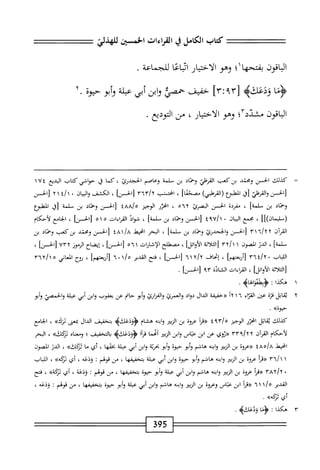 كتاب الكامل في القراءات الخمسين للهذليّ
الباقون بفتحها١؛ وهو الاختيار اتّباعًا للجماعة .
﴿مَا وَدَعَكَ﴾ [٩٣:٣] خفيف حمصيٌّ وابن أبي عبلة وأبو حيوة .٢
الباقون مشدّد٣؛ وهو الاختيار ، من التوديع .
= كذلك الحسن ومحمّد بن كعب القرظيّ وحمّاد بن سلمة وعاصم الجحدريّ ، كما في حواشي كتاب البديع ١٧٤
[الحسن والقرظيّ [في المطبوع (القرطبي) مصحّفا] ، المحتسب ٣٦٣/٢ [الحسن] ، الكشف والبيان ٢١٤/١٠ [الحسن
وحمّاد بن سلمة] ، مفردة الحسن البصريّ ٥٦٢ ، المحرّر الوجيز ٤٨٨/٥ [الحسن وحمّاد بن سلمة [في المطبوع
(سليمان)]] ، مجمع البيان ٤٩٧/١٠ [الحسن وحمّاد بن سلمة] ، شواذّ القراءات ٥١٥ [الحسن] ، الجامع لأحكام
القرآن ٣١٦/٢٢ [الحسن والجحدريّ وحمّاد بن سلمة] ، البحر المحيط ٤٨١/٨ [الحسن ومحمّد بن كعب وحمّاد بن
سلمة] ، الدرّ المصون ٣٢/١١ [الثلاثة الأوائل] ، مصطلح الإشارات ٥٦١ [الحسن] ، إيضاح الرموز ٧٣٢ [الحسن] ،
اللباب ٣٦٤/٢٠ [أربعتهم] ، إتحاف ٦١٢/٢ [الحسن] ، فتح القدير ٦٠١/٥ [أربعتهم] ، روح المعاني ٣٦٢/١٥
[الثلاثة الأوائل] ، القراءات الشاذّة ٩٣ [الحسن] .
١ هكذا : ﴿بِطَغْوَاهَا﴾ .
٢ يُقابل قرّة عين القرّاء ٢١٦أ «خفيفة الدال دواد والعمريّ والفزاريّ وأبو حاتم عن يعقوب وابن أبي عبلة والحمصيّ وأبو
حيوة» .
كذلك يُقابل المحرّر الوجيز ٤٩٣/٥ «قرأ عروة بن الزبير وابنه هشام ﴿وَدَعَكَ﴾ بتخفيف الدال بمعنى ترك» ، الجامع
لأحكام القرآن ٣٣٩/٢٢ «رُوي عن ابن عبّاس وابن الزبير أنّهما قرآه ﴿وَدَعَكَ﴾ بالتخفيف ؛ ومعناه تركك» ، البحر
المحيط ٤٨٥/٨ «عروة بن الزبير وابنه هاشم وأبو حيوة وأبو بحريّة وابن أبي عبلة بخفّها ، أي ما تركك» ، الدرّ المصون
٣٦/١١ «قرأ عروة بن الزبير وابنه هاشم وأبو حيوة وابن أبي عبلة بتخفيفها ، من قولهم : وَدَعَهُ ، أي تركه» ، اللباب
٣٨٢/٢٠ «قرأ عروة بن الزبير وابنه هاشم وابن أبي عبلة وأبو حيوة بتخفيفها ، من قولهم : وَدَعَهُ ، أي تركه» ، فتح
القدير ٦١١/٥ «قرأ ابن عبّاس وعروة بن الزبير وابنه هاشم وابن أبي عبلة وأبو حيوة بتخفيفها ، من قولهم : وَدَعَه ،
أي تركه» .
٣ هكذا : ﴿مَا وَدَّعَكَ﴾ .
395